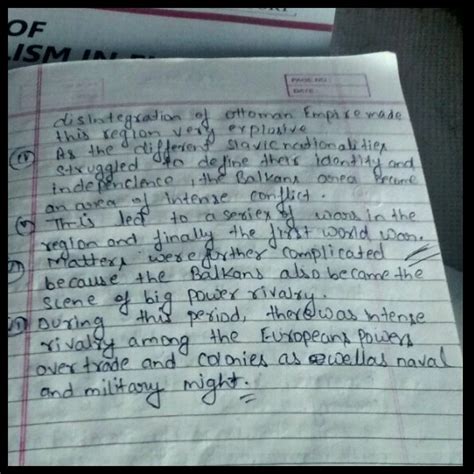 OF
ISM IN
PAGE NO.:
DATE:
disintegration of ottoman Empire made
this region very explosive
(iv) As the different slavic nationalities
struggled to define their identity and
independence, the Balkans area became
an area of intense conflict.
(v) This led to a series of wars in the
region and finally the first world war.
Matters were further complicated
because the Balkans also became the
scene of big power rivalry.
During this period, there was intense
rivalry among the Europeans powers
over trade and colonies as well as naval
and military might.